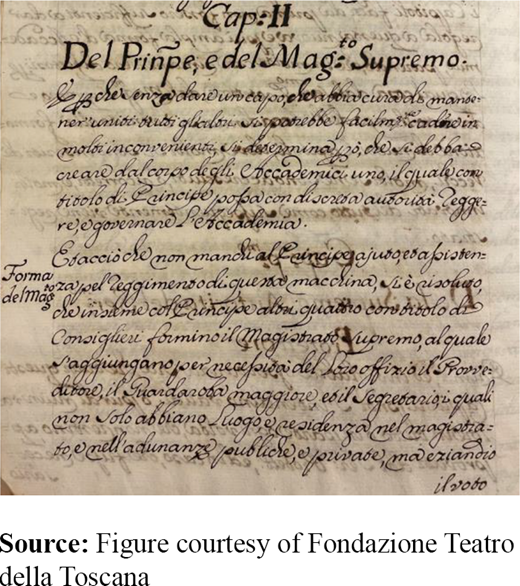 Cap: II
Del Prin̄pe, e del Mag:to Supremo.
Perche senza dare un capo, che abbia cura di mante-
ner uniti tutti gli altri si potrebbe facilm:te cadere in
molti inconvenienti, si determina però, che si debba
creare dal corpo degli Accademici uno, il quale con
titolo di Principe possa con discreta autorità regge-
re, e governare l'Accademia.
Et acciò che non manchi al Principe ajuto, et assisten-
Forma
del Mag:to
za pel reggimento di questa macchina, si è risoluto,
che insieme col Principe altri quattro con titolo di
Consiglieri formino il Magistrato Supremo, al quale
s'aggiungano per necessità del loro offizio il Prove-
ditore, il Guardaroba maggiore, et il Segretario, i quali
non solo abbiano luogo, e residenza nel magistra-
to, e nell'adunanze publiche, e private, ma eziandio
il voto
Source: Figure courtesy of Fondazione Teatro
della Toscana